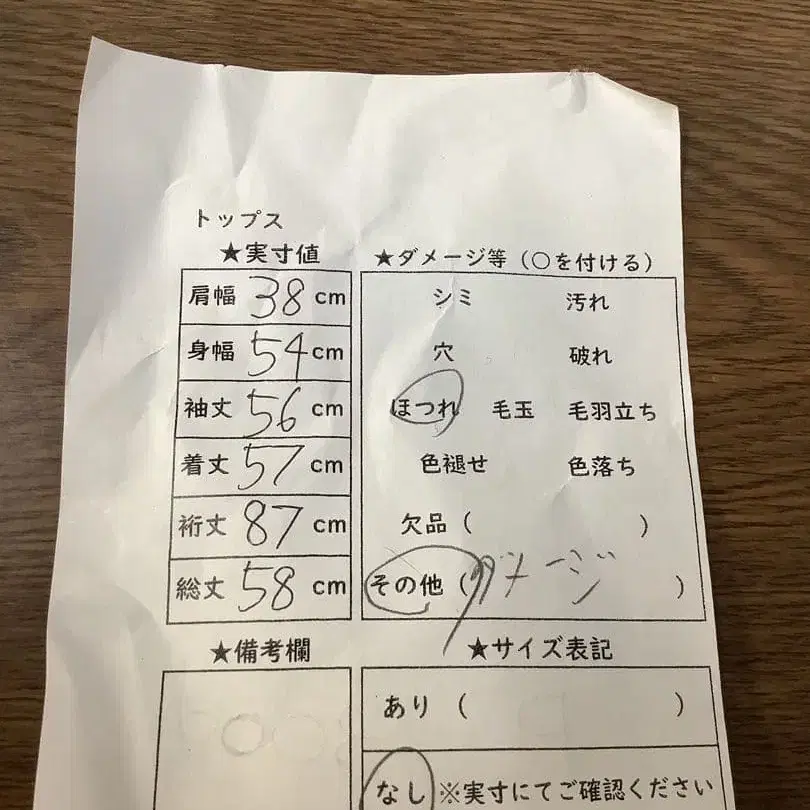 トップス
★実寸値
肩幅 38 cm
身幅 54 cm
袖丈 56 cm
着丈 57 cm
裄丈 87 cm
総丈 58 cm
★ダメージ等（○を付ける）
シミ 汚れ
穴 破れ
ほつれ 毛玉 毛羽立ち
色褪せ 色落ち
欠品（ ）
その他（ダメージ）
★備考欄
★サイズ表記
あり（ ）
なし ※実寸にてご確認ください